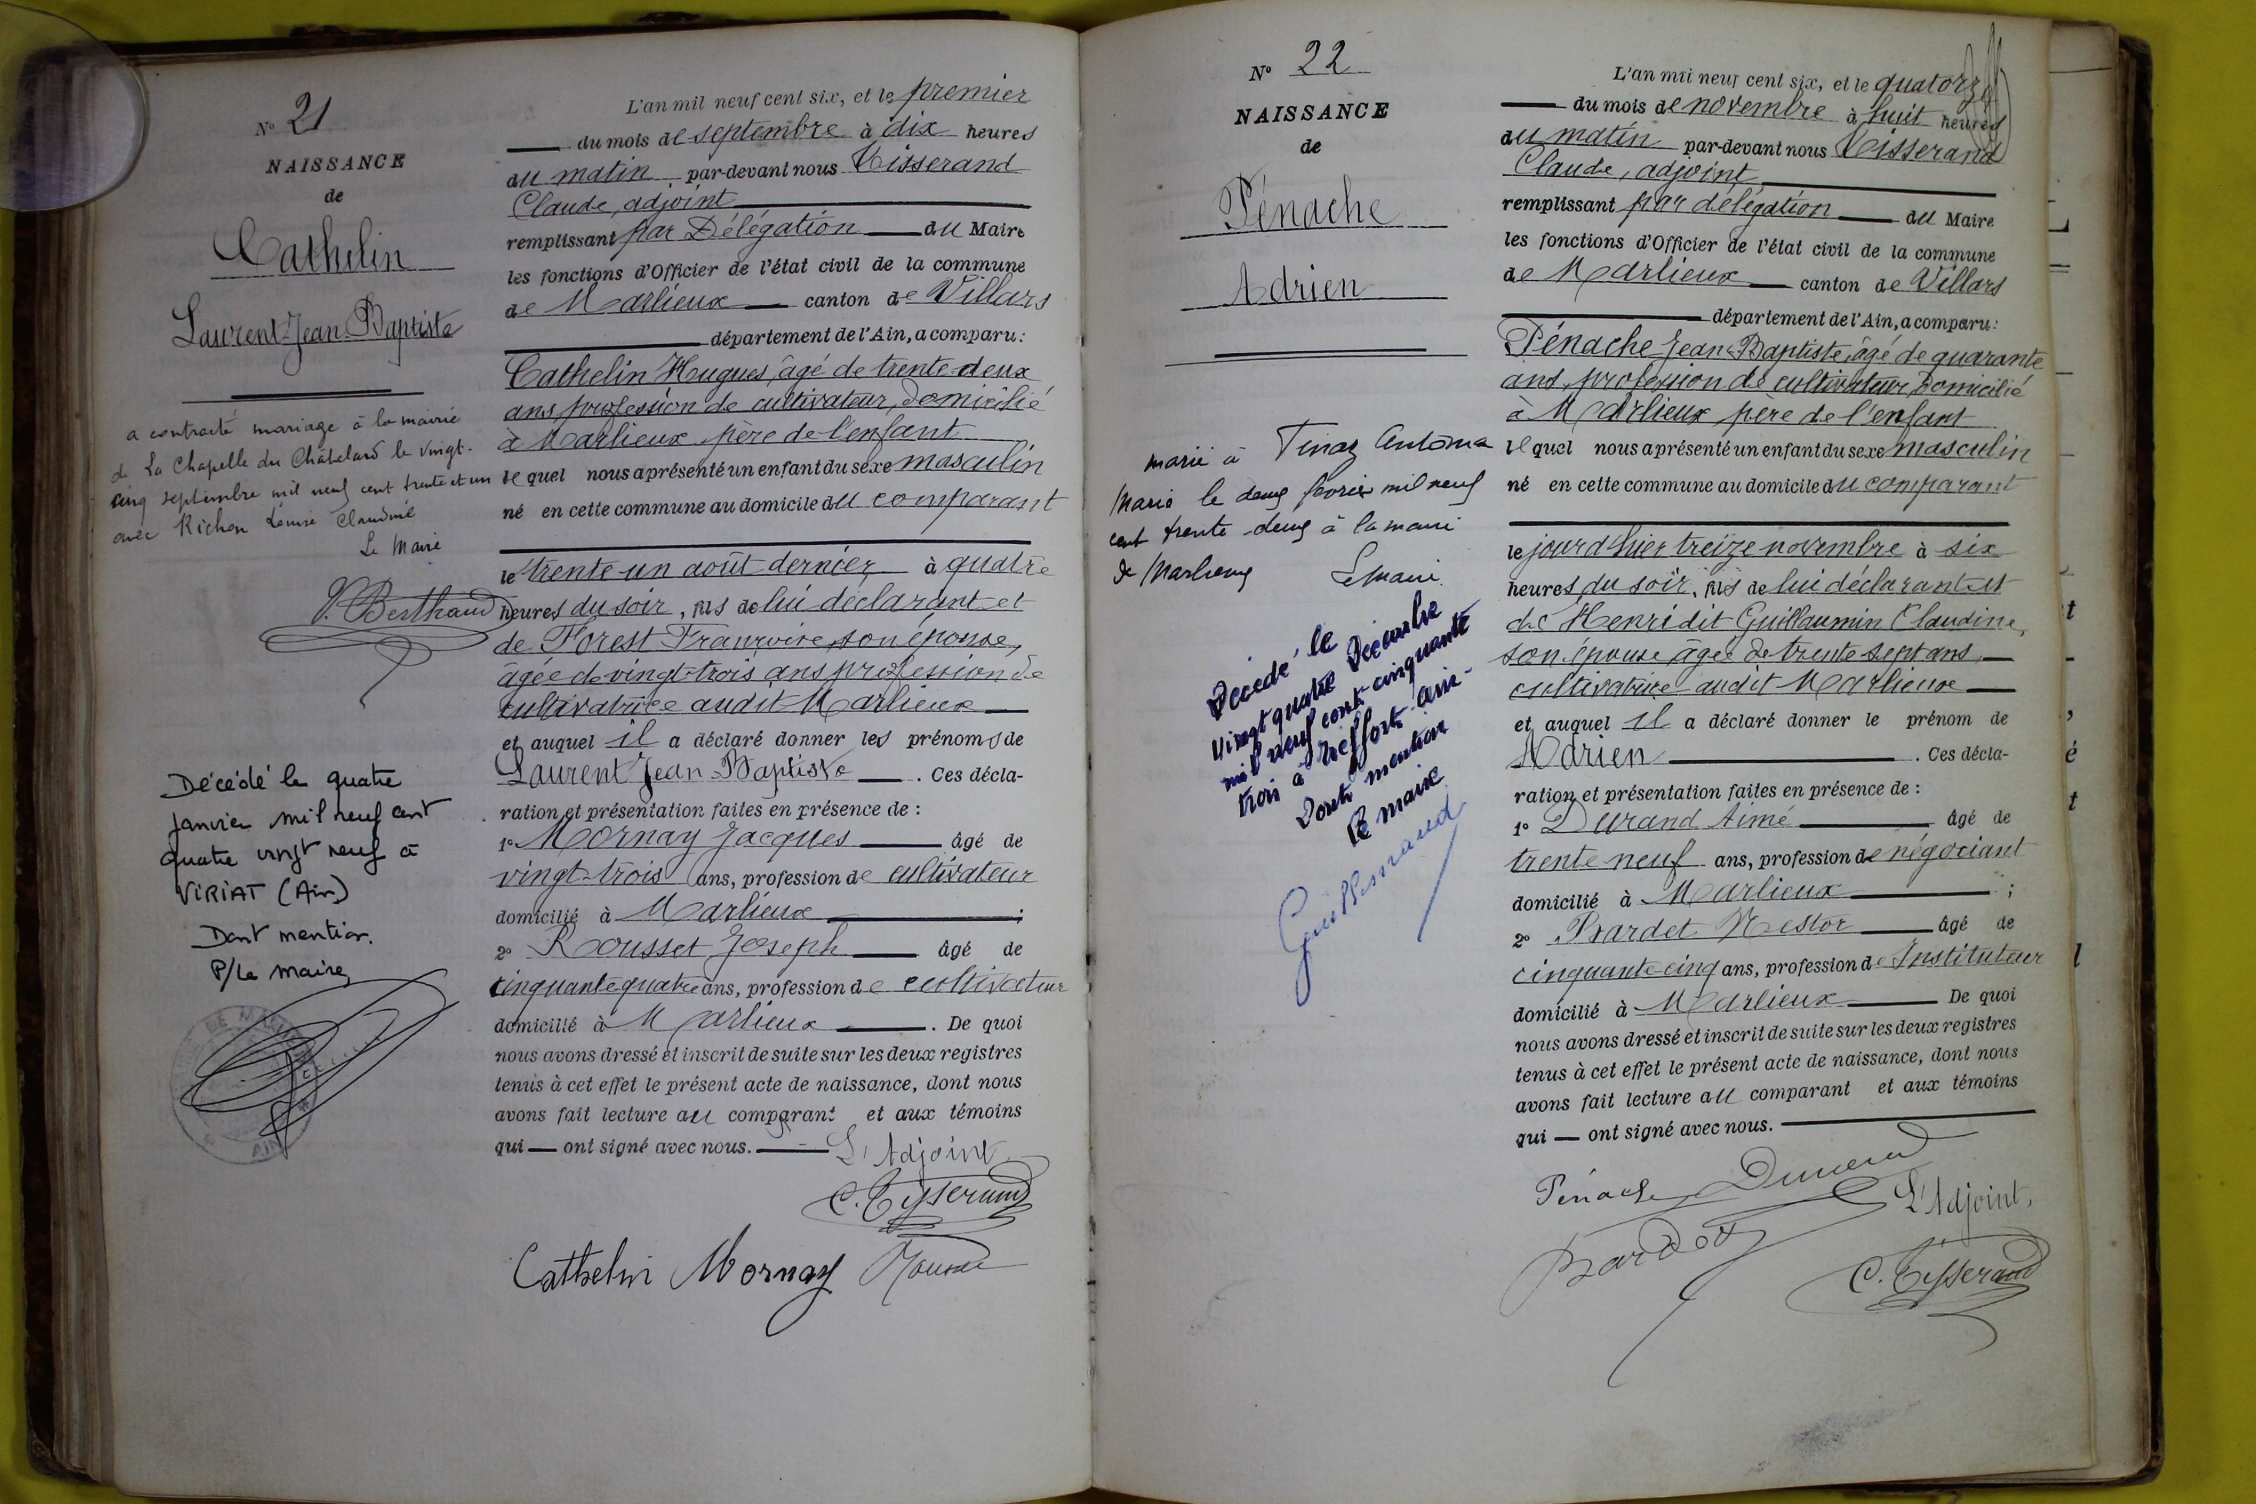 N° 21
NAISSANCE
de
Cathelin
Laurent Jean-Baptiste
a contracté mariage à la mairie
de La Chapelle du Châtelard le vingt-
cinq septembre mil neuf cent trente et un
avec Richon Louise Claudine
Le Maire
V. Berthaud
Décédé le quatre
janvier mil neuf cent
quatre vingt neuf à
VIRIAT (Ain)
Dont mention.
P/Le Maire
L'an mil neuf cent six, et le premier
du mois de septembre à dix heures
du matin par-devant nous Tisserand
Claude, adjoint
remplissant par Délégation du Maire
les fonctions d'Officier de l'état civil de la commune
de Marlieux canton de Villars
département de l'Ain, a comparu:
Cathelin Hugues, âgé de trente-deux
ans, profession de cultivateur, domicilié
à Marlieux père de l'enfant
lequel nous a présenté un enfant du sexe masculin
né en cette commune au domicile du comparant
le trente un août dernier à quatre
heures du soir, fils de lui déclarant et
de Forest Françoise, son épouse,
âgée de vingt-trois ans profession de
cultivatrice audit Marlieux
et auquel il a déclaré donner les prénoms de
Laurent Jean-Baptiste . Ces décla-
ration et présentation faites en présence de :
1° Mornay Jacques âgé de
vingt-trois ans, profession de cultivateur
domicilié à Marlieux ;
2° Rousset Joseph âgé de
cinquante quatre ans, profession de cultivateur
domicilié à Marlieux . De quoi
nous avons dressé et inscrit de suite sur les deux registres
tenus à cet effet le présent acte de naissance, dont nous
avons fait lecture au comparant et aux témoins
qui — ont signé avec nous. — L'Adjoint
C. Tisserand
Cathelin Mornay Rousset
N° 22
NAISSANCE
de
Pénache
Adrien
marié à Tinaz Antonia
Marie le deux février mil neuf
cent trente-deux à la mairie
de Marlieux Le Maire
Décédé le
vingt quatre Décembre
mil neuf cent cinquante
trois à Treffort Ain-
Dont mention
Le maire
Guillermaud
L'an mil neuf cent six, et le quatorze
du mois de novembre à huit heures
du matin par-devant nous Tisserand
Claude, adjoint
remplissant par délégation du Maire
les fonctions d'Officier de l'état civil de la commune
de Marlieux canton de Villars
département de l'Ain, a comparu:
Pénache Jean-Baptiste, âgé de quarante
ans, profession de cultivateur, domicilié
à Marlieux père de l'enfant
lequel nous a présenté un enfant du sexe masculin
né en cette commune au domicile du comparant
le jour d'hier treize novembre à six
heures du soir, fils de lui déclarant et
de Henri dit Guillaumin Claudine,
son épouse âgée de trente sept ans
cultivatrice audit Marlieux
et auquel il a déclaré donner le prénom de
Adrien . Ces décla-
ration et présentation faites en présence de :
1° Durand Aimé âgé de
trente neuf ans, profession de négociant
domicilié à Marlieux ;
2° Bardet Nestor âgé de
cinquante-cinq ans, profession de Instituteur
domicilié à Marlieux De quoi
nous avons dressé et inscrit de suite sur les deux registres
tenus à cet effet le présent acte de naissance, dont nous
avons fait lecture au comparant et aux témoins
qui — ont signé avec nous.
Pénache Durand
L'Adjoint,
Bardet
C. Tisserand